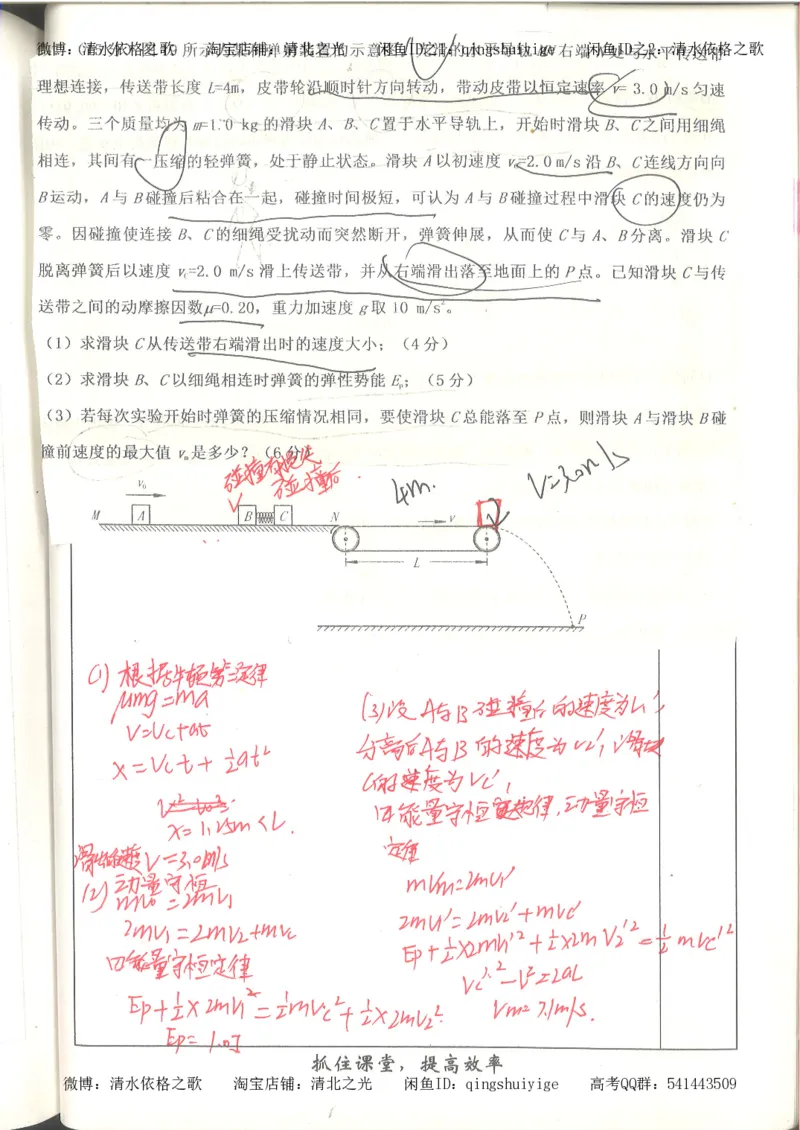 微博：清水依格之歌 淘宝店铺：清北之光 闲鱼ID之1：qingshuiyige 闲鱼ID之2：清水依格之歌
理想连接，传送带长度 L=4m，皮带轮沿顺时针方向转动，带动皮带以恒定速率 v= 3.0 m/s 匀速
传动。三个质量均为 m=1.0 kg 的滑块 A、B、C 置于水平导轨上，开始时滑块 B、C 之间用细绳
相连，其间有一压缩的轻弹簧，处于静止状态。滑块 A 以初速度 v₀=2.0 m/s 沿 B、C 连线方向向
B 运动，A 与 B 碰撞后粘合在一起，碰撞时间极短，可认为 A 与 B 碰撞过程中滑块 C 的速度仍为
零。因碰撞使连接 B、C 的细绳受扰动而突然断开，弹簧伸展，从而使 C 与 A、B 分离。滑块 C
脱离弹簧后以速度 vC=2.0 m/s 滑上传送带，并从右端滑出落至地面上的 P 点。已知滑块 C 与传
送带之间的动摩擦因数μ=0.20，重力加速度 g 取 10 m/s²。
（1）求滑块 C 从传送带右端滑出时的速度大小；（4 分）
（2）求滑块 B、C 以细绳相连时弹簧的弹性势能 Ep；（5 分）
（3）若每次实验开始时弹簧的压缩情况相同，要使滑块 C 总能落至 P 点，则滑块 A 与滑块 B 碰
撞前速度的最大值 vm 是多少？（6 分）
碰撞
V 碰撞后
4m.
V=3.0m/s
v₀
M A B C N v
L
P
(1) 根据牛顿第二定律
μmg=ma
V=Vc+at
x=Vct+½at²
x=1.25m<L.
滑出的速度V=3.0m/s
(2) 动量守恒
mv₀=2mV₁
2mV₁=2mV₂+mvc
由能量守恒定律
Ep+½×2mV₁²=½mVc²+½×2mV₂²
Ep=1.0J
(3) 设A与B碰撞后的速度为V₁',
分离后A与B的速度为V₂',滑块
C的速度为Vc',
由能量守恒定律,动量守恒
定律
mVm=2mV₁'
2mV₁'=2mV₂'+mVc'
Ep+½×2mV₁'²+½×2mV₂'²=½mVc'²
Vc'²-V²=2aL
Vm=7.1m/s.
抓住课堂，提高效率
微博：清水依格之歌 淘宝店铺：清北之光 闲鱼ID：qingshuiyige 高考QQ群：541443509